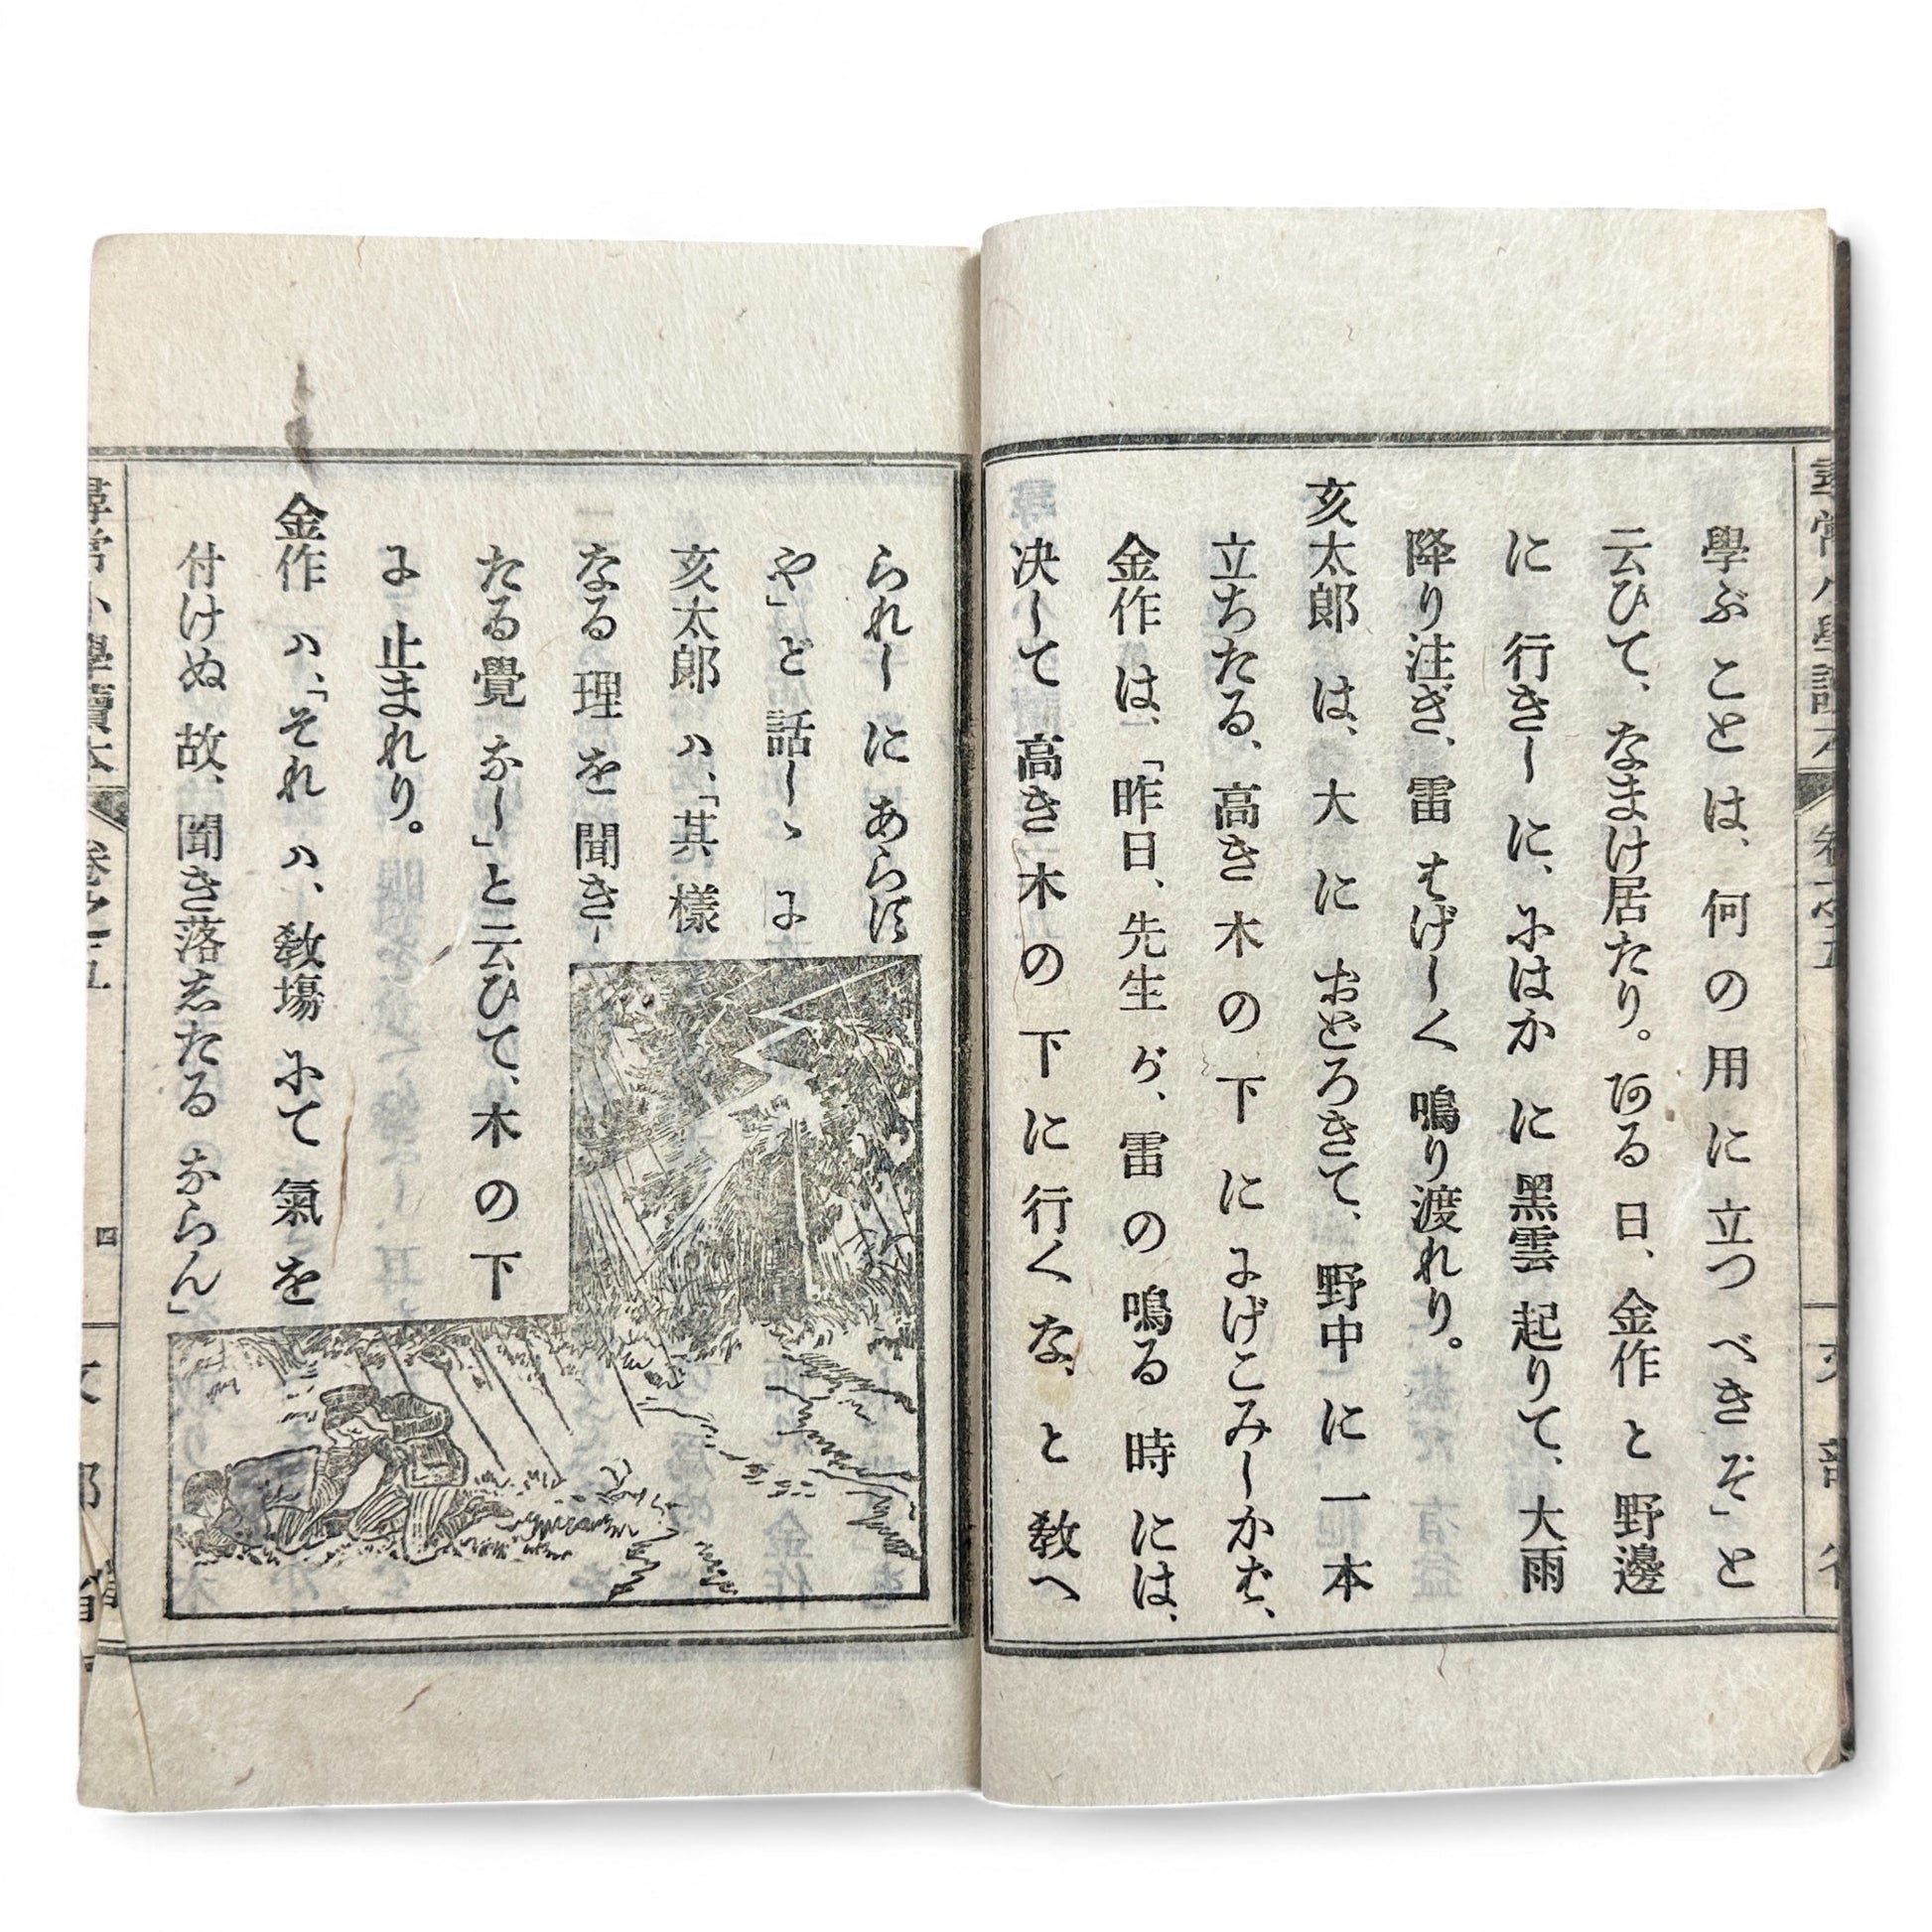 學ぶことは、何の用に立つべきぞ」と
云ひて、なまけ居たり。ある日、金作と野邊
に行きしに、にはかに黑雲起りて、大雨
降り注ぎ、雷はげしく鳴り渡れり。
亥太郎は、大におどろきて、野中に一本
立ちたる、高き木の下ににげこみしかば、
金作は、「昨日、先生が、雷の鳴る時には、
决して高き木の下に行くな、と敎へ
られしにあらずや」ど話しゝに
亥太郎ハ、「其樣
なる理を聞きし
たる覺なし」と云ひて、木の下
に止まれり。
金作ハ、「それハ、敎塲にて氣を
付けぬ故、聞き落したるならん」
尋常小學讀本
卷之五
四
文部省